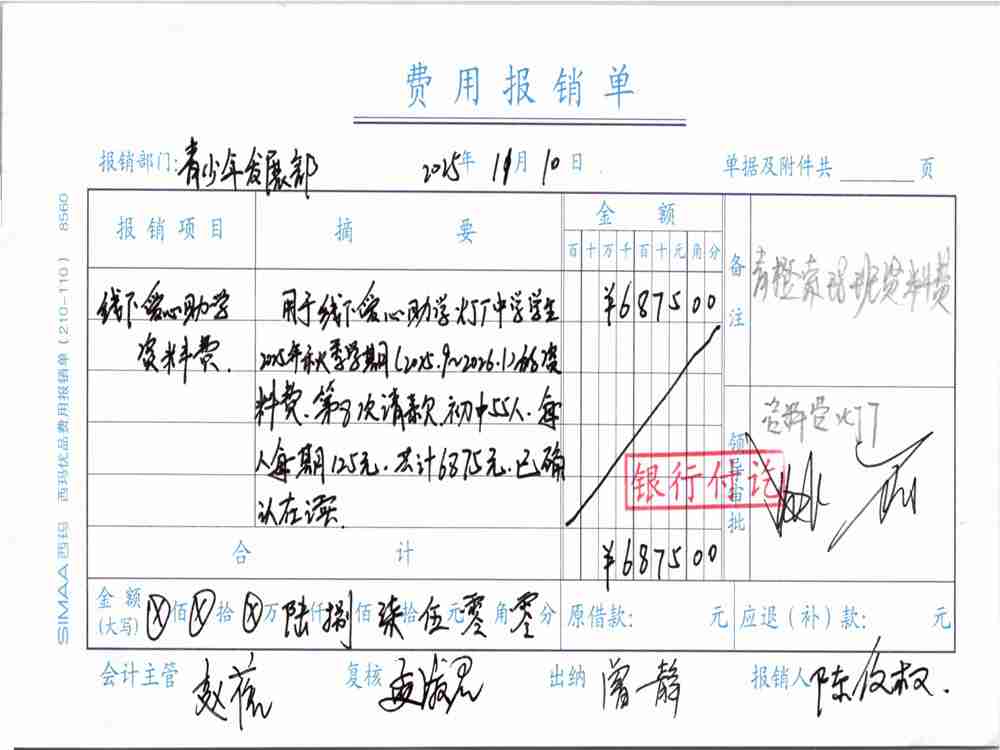 费用报销单
报销部门:青少年发展部 2025年 11月 10日 单据及附件共 页
报销项目 摘要 金额 备注
百十万千百十元角分
线下爱心助学 用于线下爱心助学灯厂中学学生 ¥687500 青橙 班资料费
资料费. 2025年秋季学期(2025.9~2026.1)的资
料费.第8次请款.初中55人.每
人每期125元.共计6875元.已确
认在读.
领导审批
银行付讫
合计 ¥687500
金额(大写) ⊗佰⊗拾⊗万陆仟捌佰柒拾伍元零角零分 原借款: 元 应退(补)款: 元
会计主管 赵 复核 出纳 曾静 报销人 陈俊权.
SIMAA 西玛 西玛优品费用报销单(210-110) 8560